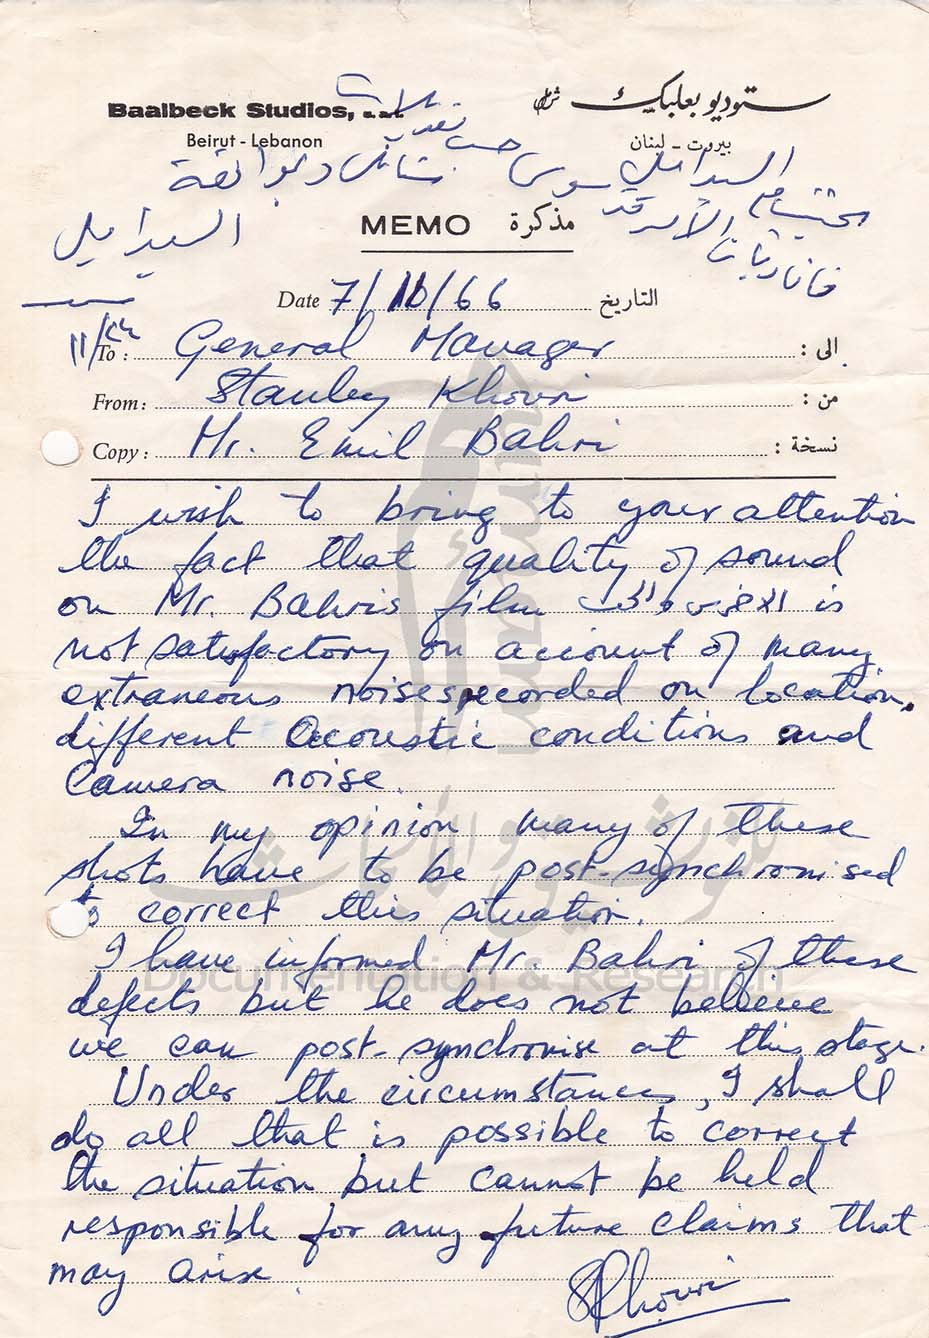 Baalbeck Studios,
ستوديو بعلبك
Beirut - Lebanon
بيروت - لبنان
السيد اميل
MEMO مذكرة
Date 7/10/66 التاريخ
To: General Manager الى:
From: Stanley Khouri من:
Copy: Mr. Emil Bahri نسخة:
I wish to bring to your attention
the fact that quality of sound
on Mr. Bahri's film الاخرس والحب is
not satisfactory on account of many
extraneous noises recorded on location,
different acoustic conditions and
Camera noise.
In my opinion many of these
shots have to be post-synchronised
to correct this situation.
I have informed Mr. Bahri of these
defects but he does not believe
we can post-synchronise at this stage.
Under the circumstances, I shall
do all that is possible to correct
the situation but cannot be held
responsible for any future claims that
may arise.
SKhouri
Umam
للتوثيق والأبحاث
Documentation & Research